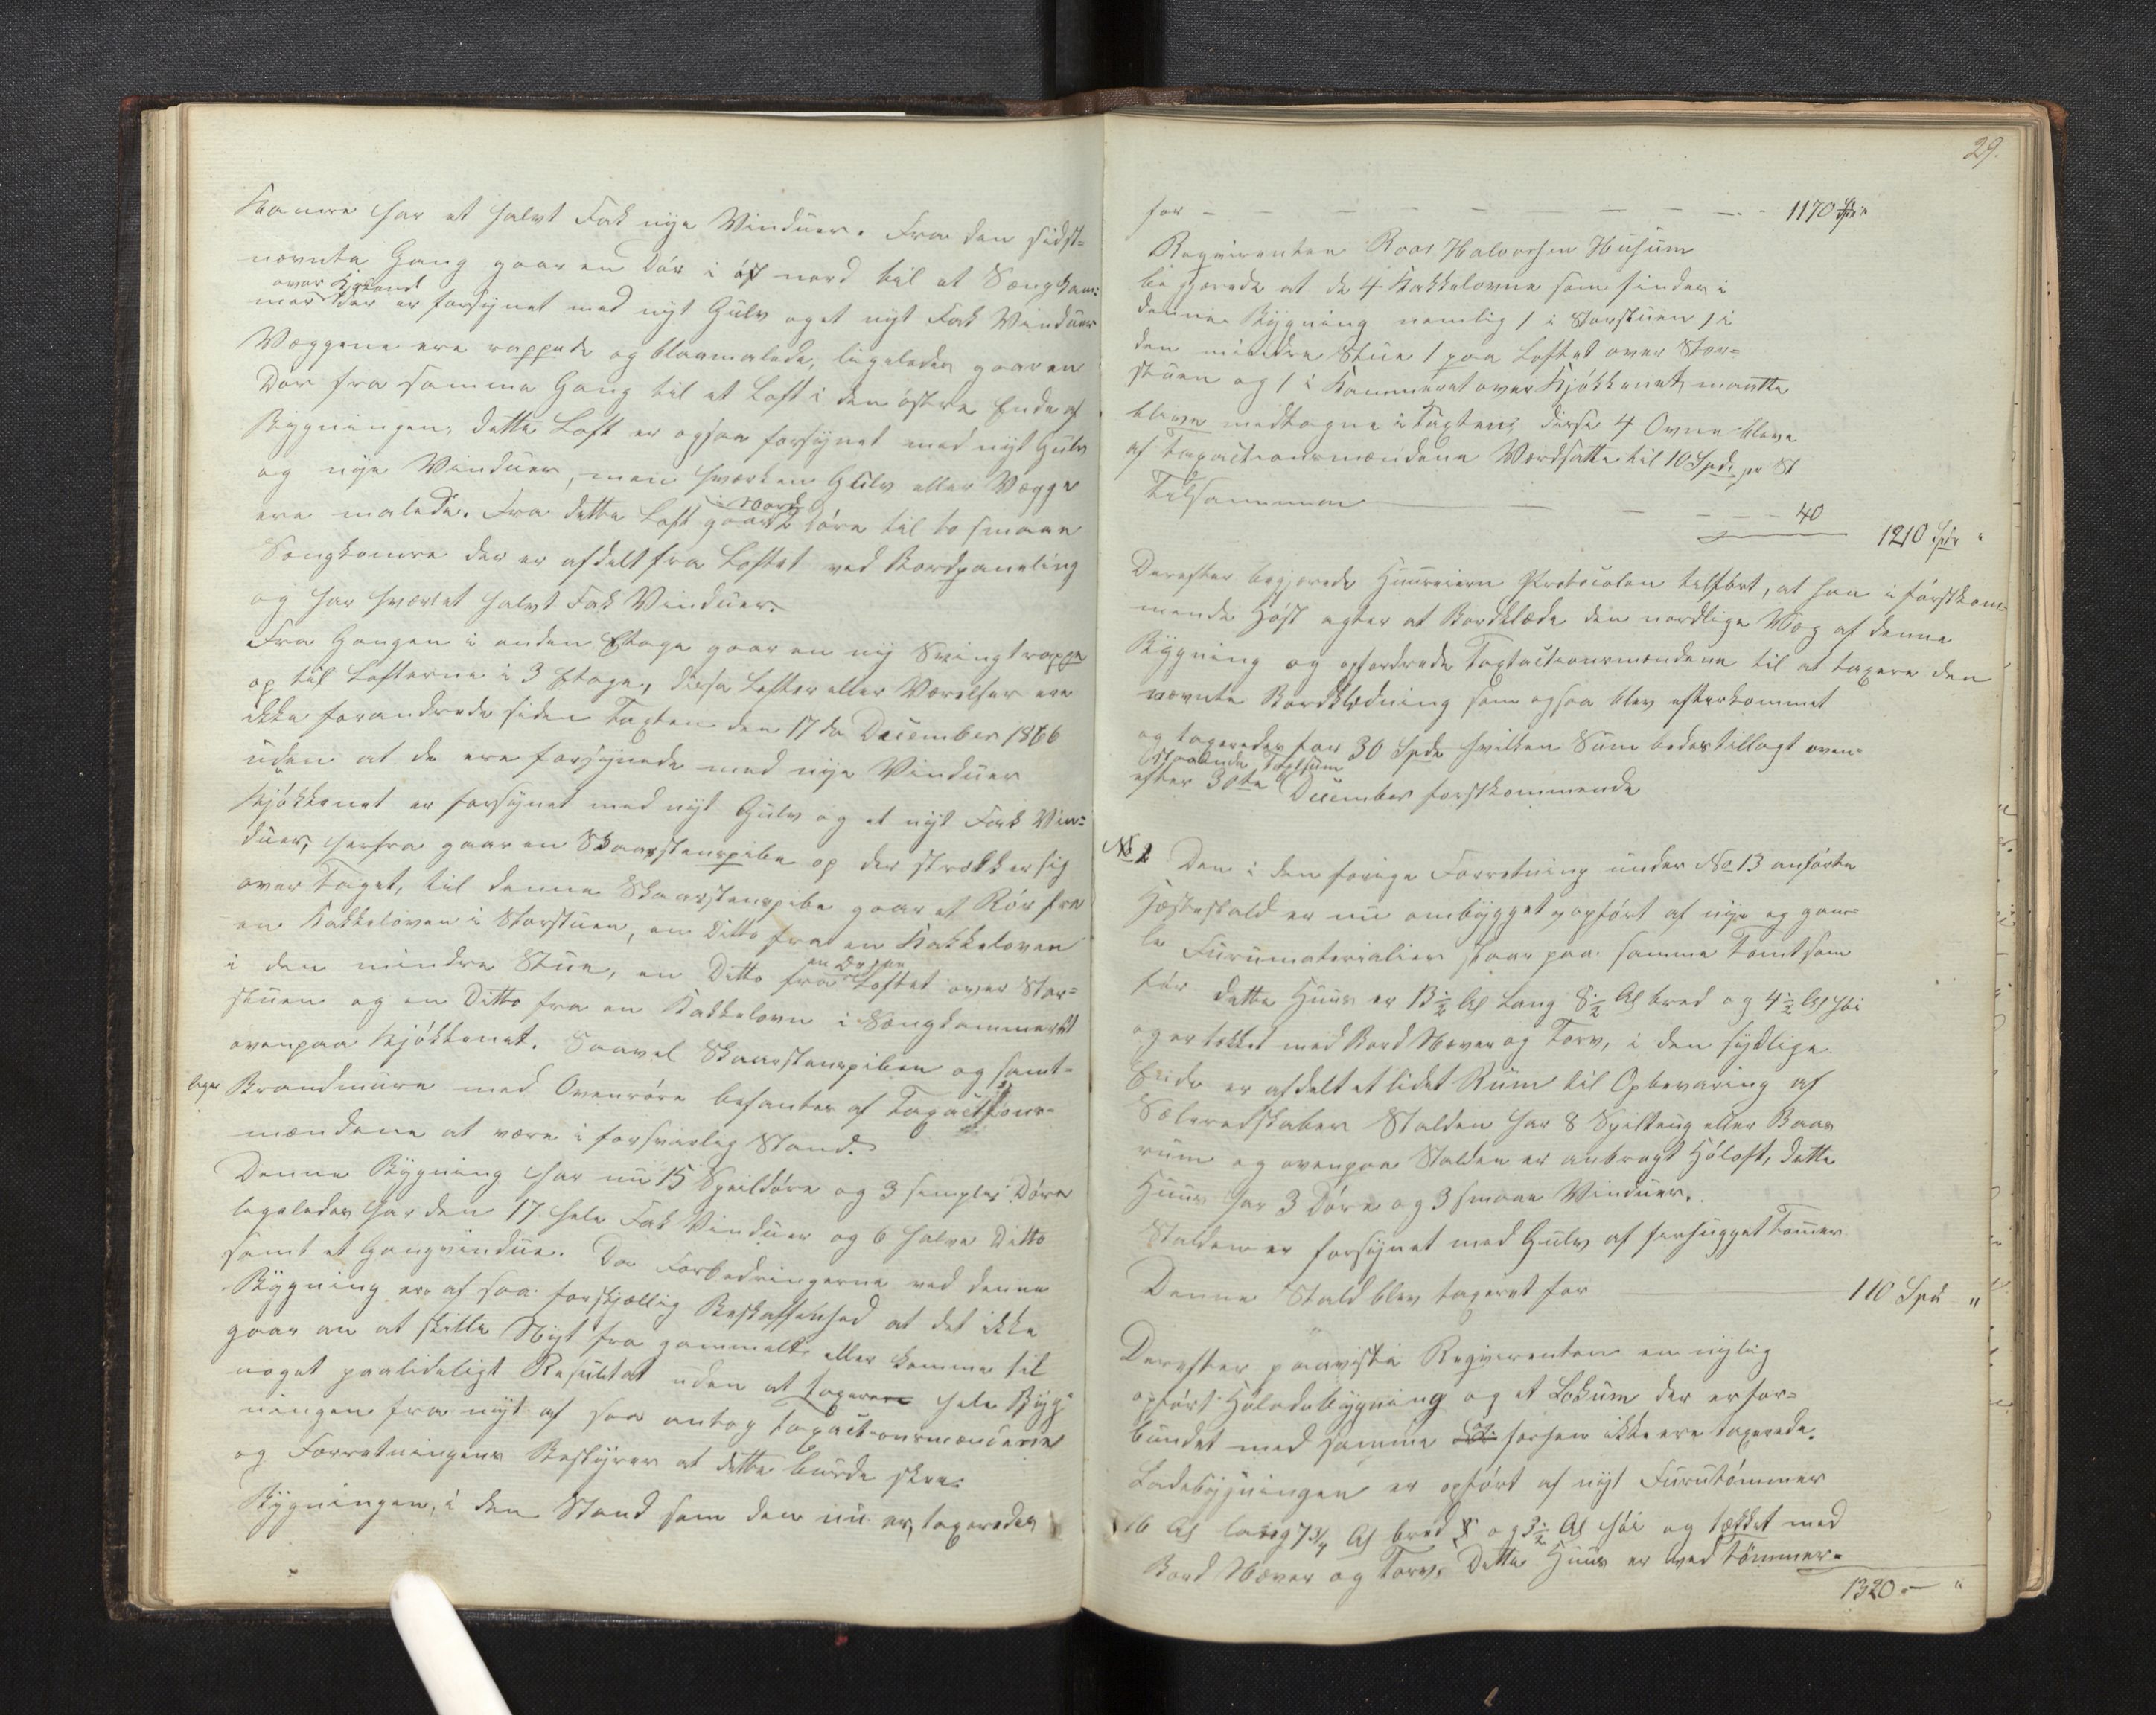 Kamre har et halvt Fak nye Vinduer. Fra den sidst-
nævnte Gang gaar en Dør i øst nord til et Sængkam-
over
mer der er forsynet med nyt Gulv og et nyt Fak Vinduer
Væggene ere rappede og blaamalede, ligeledes gaar en
Dør fra samme Gang til et Loft i den østre Ende af
Bygningen, dette Loft er ogsaa forsynet med nyt Gulv
og nye Vinduer, men hværken Gulv eller Vægge
i Nord
ere malede. Fra dette Loft gaar 2 Døre til to smaae
Sængkamre der er afdelt fra Loftet ved Bordpaneling
og har hværtet halvt Fak Vinduer.
Fra Gangen i anden Etage gaar en ny Svingtrappe
op til Lofterne i 3 Etage, disse Lofter eller Værelser ere
ikke forandrede siden Taxten den 17de December 1866
uden at de ere forsynede med nye Vinduer
Kjøkkenet er forsynet med nyt Gulv og et nyt Fak Vin-
duer, herfra gaar en Skaarstenspibe op der strækker sig
over Taget, til denne Skaarstenspibe gaar et Rør fra
en Kakkeloven i Storstuen, en Ditto fra en Kakkeloven
i den mindre Stue, en Ditto fra Loftet over Stor-
stuen og en Ditto fra en Kakkelovn i Sængkammeret
ovenpaa Kjøkkenet. Saavel Skaarstenspiben og samt-
lige Brandmure med Ovenrøre befantes af Taxactions-
mændene at være i forsvarlig Stand.
Denne Bygning har nu 15 Speildøre og 3 simple Døre
legeledes har den 17 hele Fak Vinduer og 6 halve Ditto
samt et Gangvindue. Da Forbedringerne ved denne
Bygning er af saa forskjællig Beskaffenhed at det ikke
gaar an at skille Nyt fra gammelt eller komme til
noget paalideligt Resultat uden at taxere hele Byg-
ningen fra nyt af saa antog Taxactionsmændene
og Forretningens Bestyrer at dette burde skee.
Bygningen, i den Stand som den nu er, taxeredes
29.
for - - - - - - - - 1170 Spd "
Reqvirenten Roar Halvorsen Husum
begjærede at de 4 Kakkelovne som findes i
denne Bygning nemlig 1 i Storstuen 1 i
den mindre Stue 1 paa Loftet over Stor-
stuen og 1 i Kammeret over Kjøkkenet, maatte
blive medtagne i Taxten; disse 4 Ovne bleve
af Taxactionsmændene Værdsatte til 10 Spd pr St
Tilsammen - - - - 40
1210 Spd "
Derefter begjærede Huuseieren Protocolen tilført, at han i førstkom-
mende Høst agter at Bordklæde den nordlige Væg af denne
Bygning og opfordrede Taxtactionsmændene til at taxere den
nævnte Bordklædning som ogsaa blev efterkommet
og taxeredes for 30 Spd hvilken Sum bedes tillagt oven-
staaende Taxtsum
efter 30te December førstkommende
No 2 Den i den forige Forretning under No 13 anførte
Hæstestald er nu ombygget, opført af nye og gam-
le Furumaterialier staar paa samme Tomt som
før dette Huus er 13 1/2 Al lang 8 1/2 Al bred og 4 1/2 Al høi
og er tækket med Bord Næver og Torv, i den sydlige
Ende er afdelt et lidet Rum til Opbevaring af
Sæleredskaber Stalden har 8 Spiltaug eller Baas
rum og ovenpaa Stalden er anbragt Høloft, dette
Huus har 3 Døre og 3 smaae Vinduer.
Stalden er forsynet med Gulv af hugget Tømer
Denne Stald blev taxeret for 110 Spd "
Derefter paaviste Reqvirenten en nylig
opført Høladebygning og et Lokum der er for-
bundet med samme forhen ikke ere taxerede.
Ladebygningen er opført af nyt Furutømmer
16 Al lang 7 3/4 Al bred og 3 1/2 Al høi og tækket med
Bord Næver og Torv. Dette Huus er ved Tømmer-
1320 - "